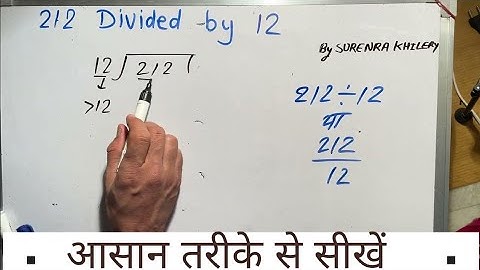 212 Divided by 12
By SURENRA KHILERY
12 ) 212 (
>12
212÷12
या
212
12
▪ आसान तरीके से सीखें ▪